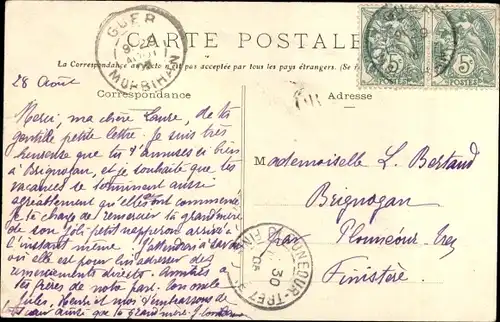 CARTE POSTALE
La Correspondance au recto n'est pas acceptée par tous les pays étrangers. (Se
Correspondance
Adresse
GUER
MORBIHAN
5c
5c
POSTES
28 Août
Merci, ma chère Laure, de ta
gentille petite lettre. Je suis très
heureuse que tu t'amuses si bien
à Brignogan, et je souhaite que tes
vacances se terminent aussi
agréablement qu'elles ont commencé
Je te charge de remercier ta grand'mère
de son joli petit napperon arrivé à
l'instant même. J'attendrai
où elle est pour lui adresser des
remerciements directs. Amitiés à
tes frères de notre part. Ton oncle
Jules, Henri et moi t'embrassons de
tout cœur ainsi que ta grand'mère.
Mademoiselle L. Bertaud
Brignogan
par Plounéour-Trez
Finistère
PLOUNÉOUR-TREZ
FINIS
30
04